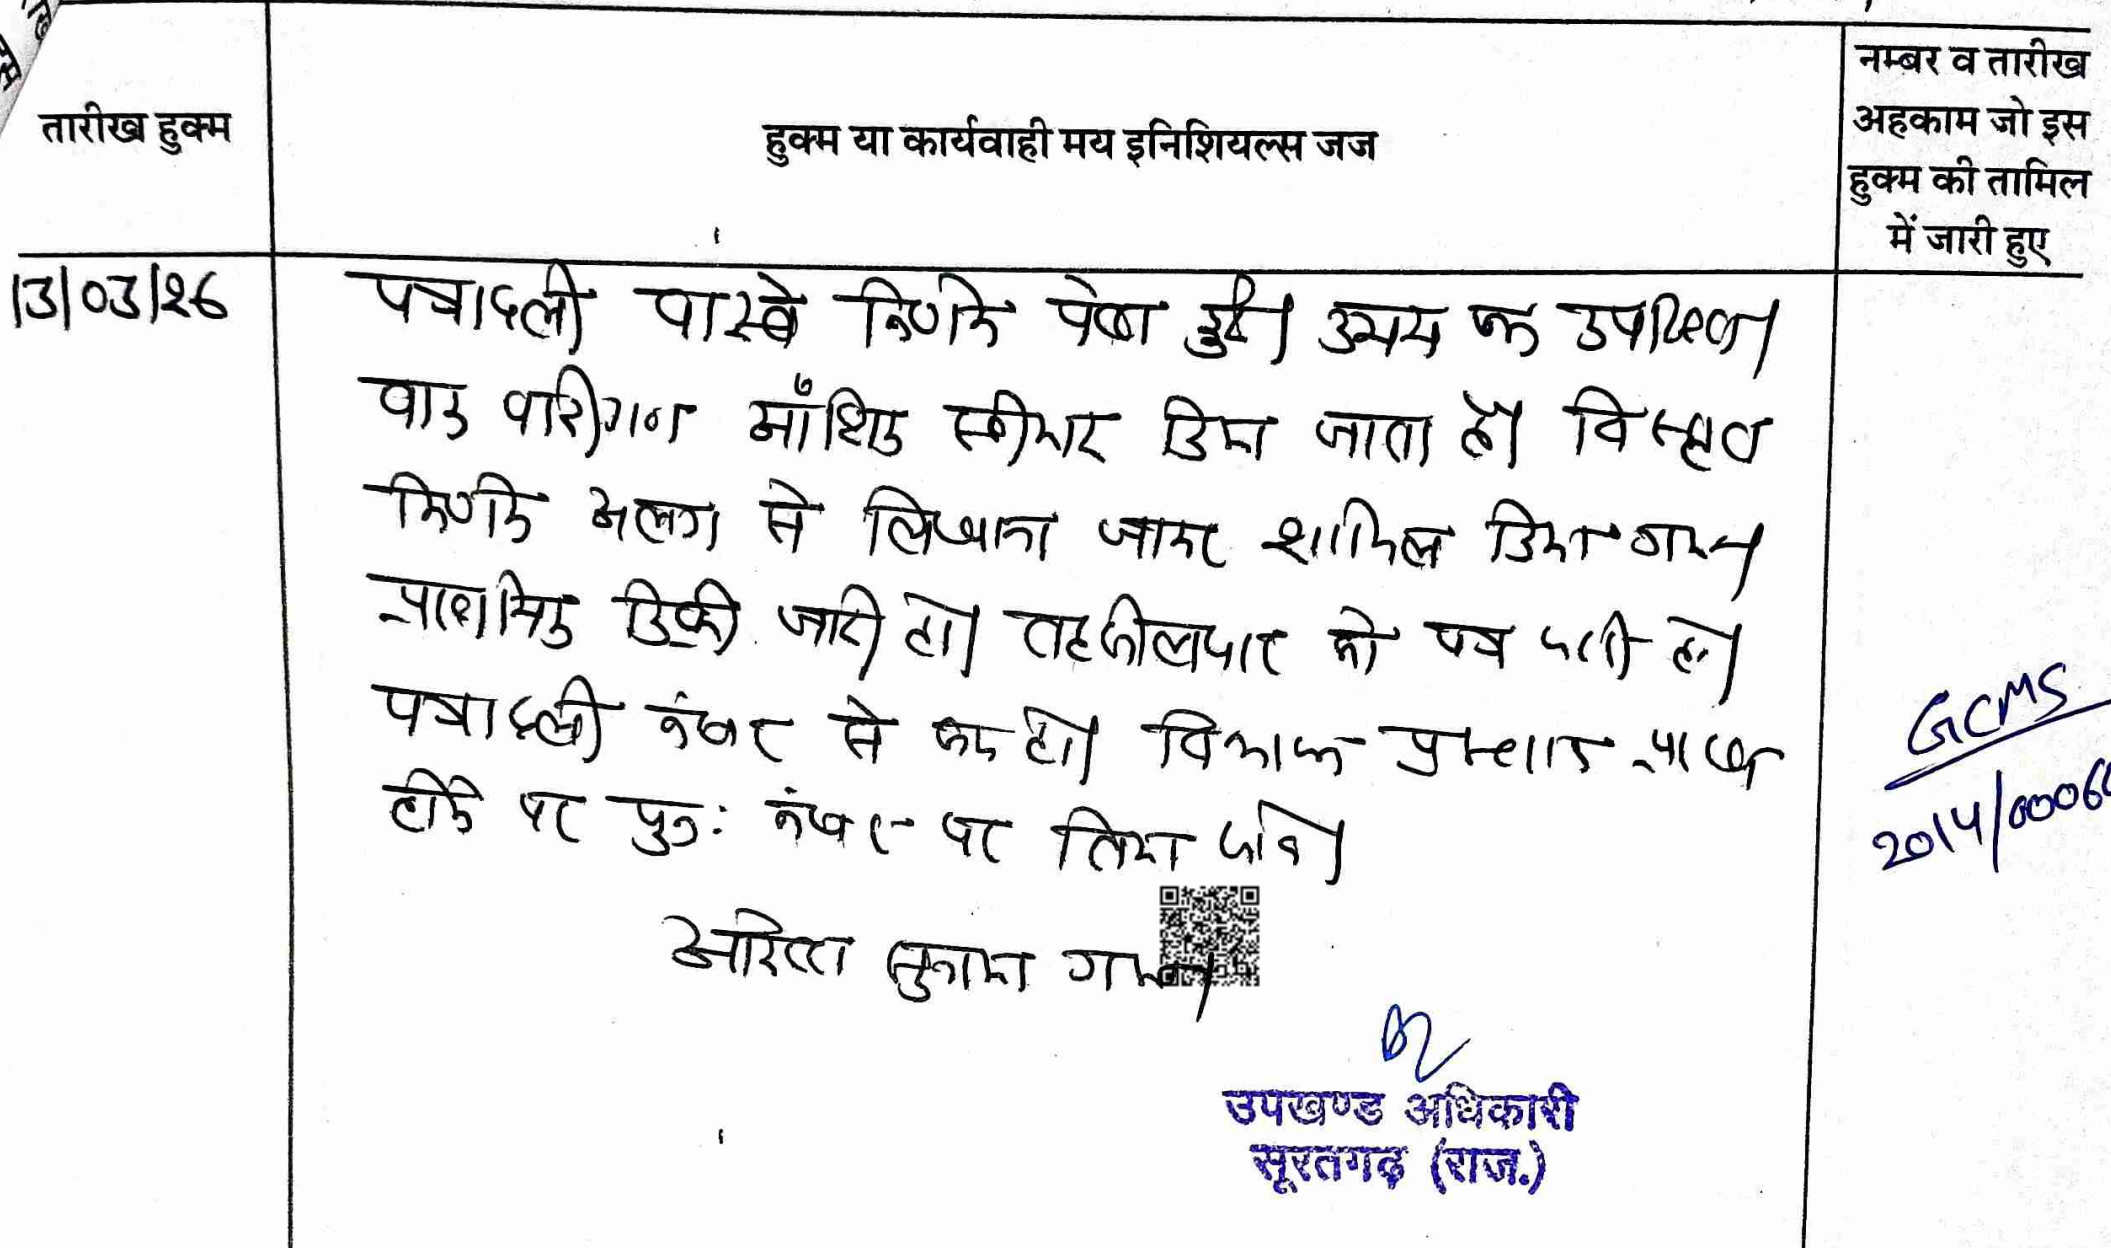 तारीख हुक्म
हुक्म या कार्यवाही मय इनिशियल्स जज
नम्बर व तारीख
अहकाम जो इस
हुक्म की तामिल
में जारी हुए
13/03/26
पत्रावली वास्ते निर्णय पेश हुई। उभय पक्ष उपस्थित।
वाद वादीगण आँशिक स्वीकार किया जाता है। विस्तृत
निर्णय अलग से लिखाया जाकर शामिल किया गया।
प्राथमिक डिक्री जारी हो। तहसीलदार को पत्र जारी हो।
पत्रावली नंबर से कम हो। विभाजन प्रस्ताव प्राप्त
होने पर पुन: नंबर पर लिया जावे।
आदेश सुनाया गया।
GCMS
2014/0006
उपखण्ड अधिकारी
सूरतगढ़ (राज.)